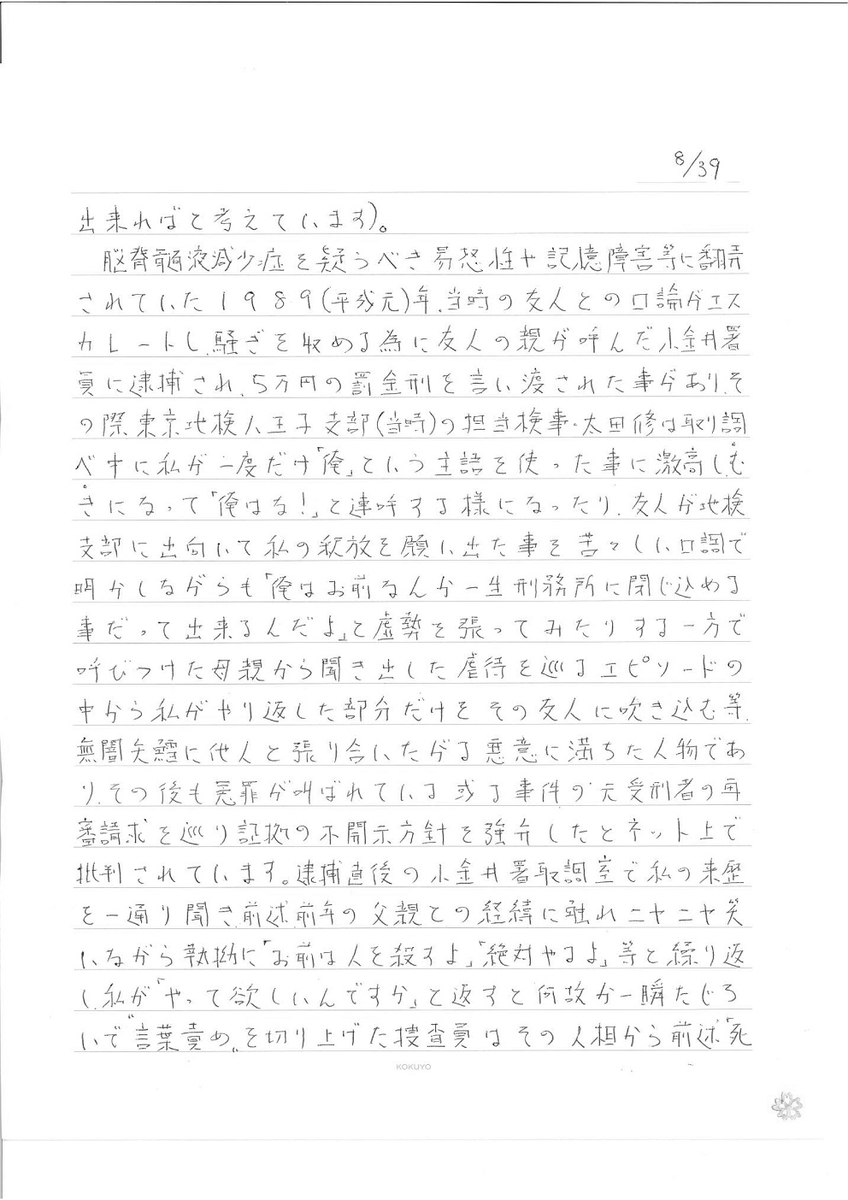 8/39
出来ればと考えています)。
脳脊髄液減少症を疑うべき易怒性や記憶障害等に翻弄
されていた1989(平成元)年、当時の友人との口論がエス
カレートし、騒ぎを収める為に友人の親が呼んだ小金井署
員に逮捕され、5万円の罰金刑を言い渡された事があり、そ
の際東京地検八王子支部(当時)の担当検事・太田修は取り調
べ中に私が一度だけ「俺」という主語を使った事に激高し、む
きになって「俺はな!」と連呼する様になったり、友人が地検
支部に出向いて私の釈放を願い出た事を苦々しい口調で
明かしながらも「俺はお前なんか一生刑務所に閉じ込める
事だって出来るんだよ」と虚勢を張ってみたりする一方で
呼びつけた母親から聞き出した虐待を巡るエピソードの
中から私がやり返した部分だけをその友人に吹き込む等、
無闇矢鱈に他人と張り合いたがる悪意に満ちた人物であ
り、その後も冤罪が叫ばれている或る事件の元受刑者の再
審請求を巡り証拠の不開示方針を強弁したとネット上で
批判されています。逮捕直後の小金井署取調室で私の来歴
を一通り聞き、前述前年の父親との経緯に触れニヤニヤ笑
いながら執拗に「お前は人を殺すよ」「絶対やるよ」等と繰り返
し、私が「やって欲しいんですか」と返すと何故か一瞬たじろ
いで〝言葉責め〟を切り上げた捜査員はその人相から前述「死
KOKUYO